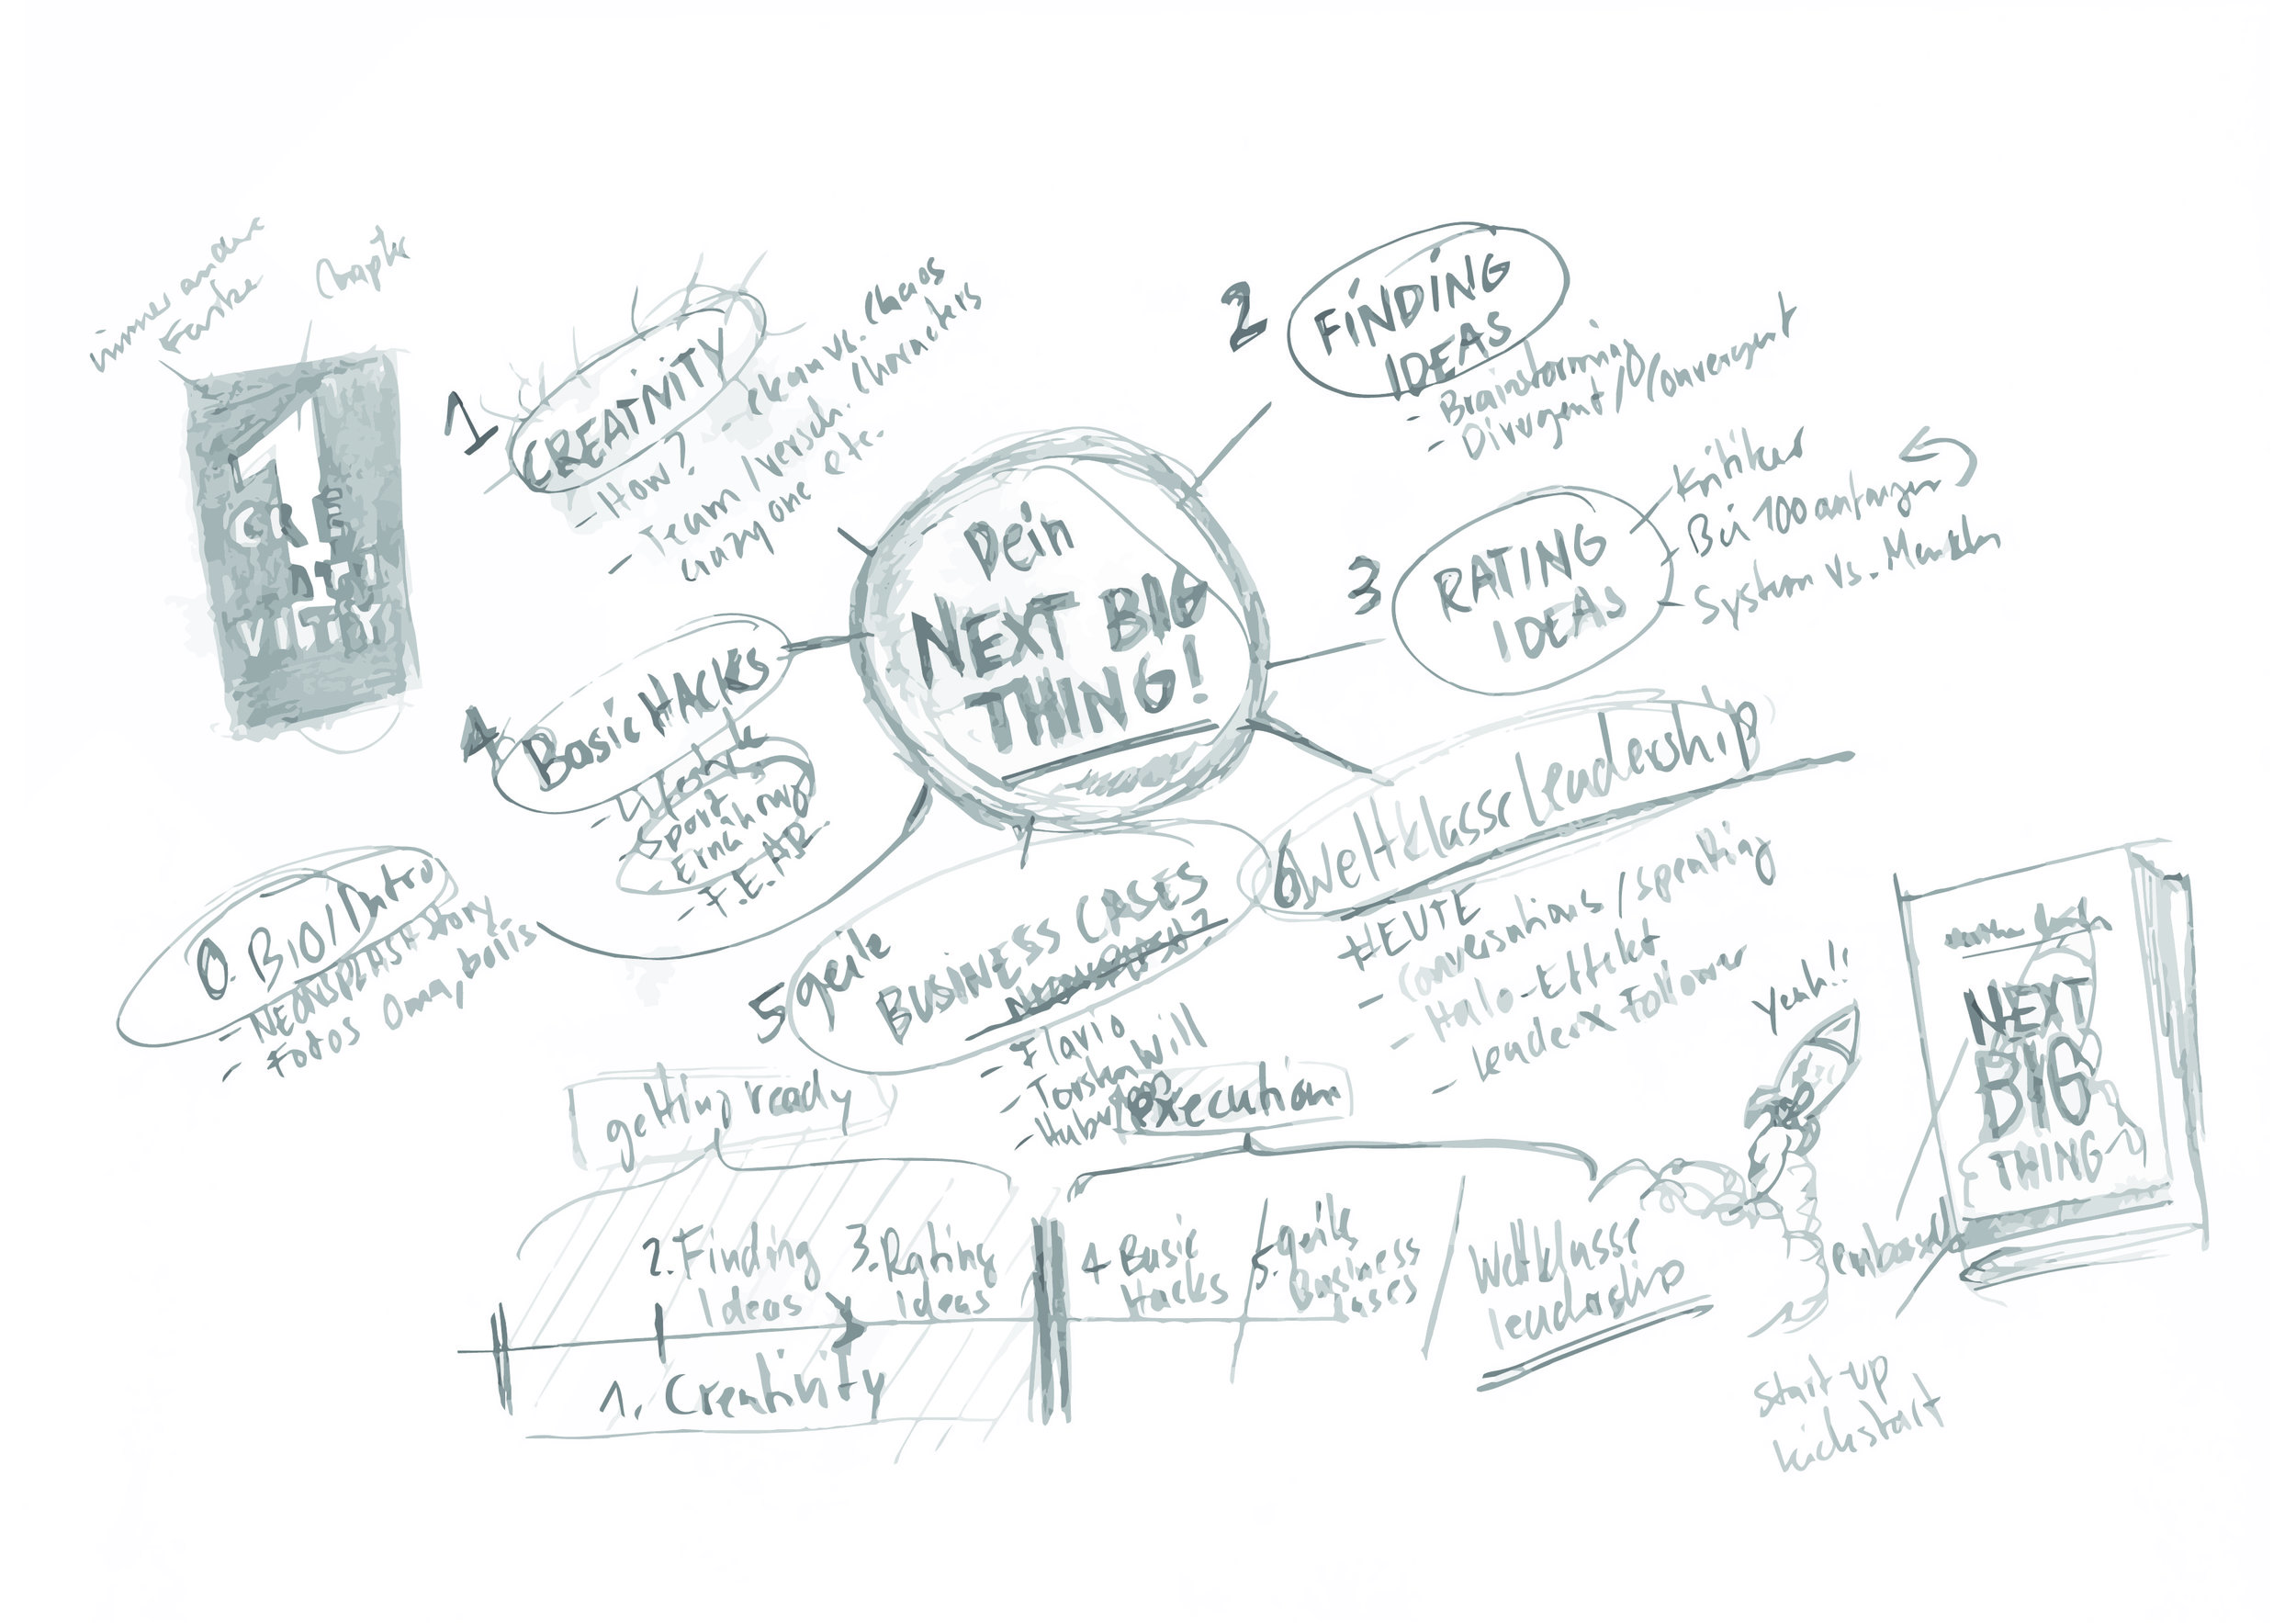 immer andere
Farbe
1
CRE
ATI
VITY
1
CREATIVITY
- How?
clean vs. Chaos
- Team / versch. Characters
crazy one etc.
2
FINDING
IDEAS
- Brainstorming
- Divergent / Convergent
3
RATING
IDEAS
Kritiker
Bei 100 anfangen
System vs.
Dein
NEXT BIG
THING!
4
Basic HACKS
Sport
Ernährung
- F.E.
0. BIO / Intro
- NEONSPLASH Story
- Fotos Oma,
5 geile
BUSINESS CASES
- Flavio
- Torsten Will
6 Weltklasse Leadership
HEUTE
- Conversations / speaking
- Halo-Effekt
- Leader x Follower
getting ready
Execution
2. Finding
Ideas
3. Rating
ideas
4 Basic
Hacks
5. geile
Business
Cases
Weltklasse
leadership
1. Creativity
Yeah!!
NEXT
BIG
THING
embossed
Start-up
kickstart